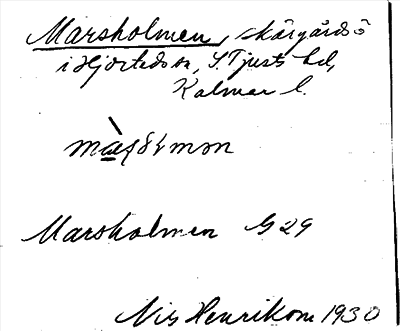 Marsholmen, skärgårdsö
i Hjorteds sn, S Tjusts hd,
Kalmar l.
Marsholmen G 29
Nils Henrikson 1930